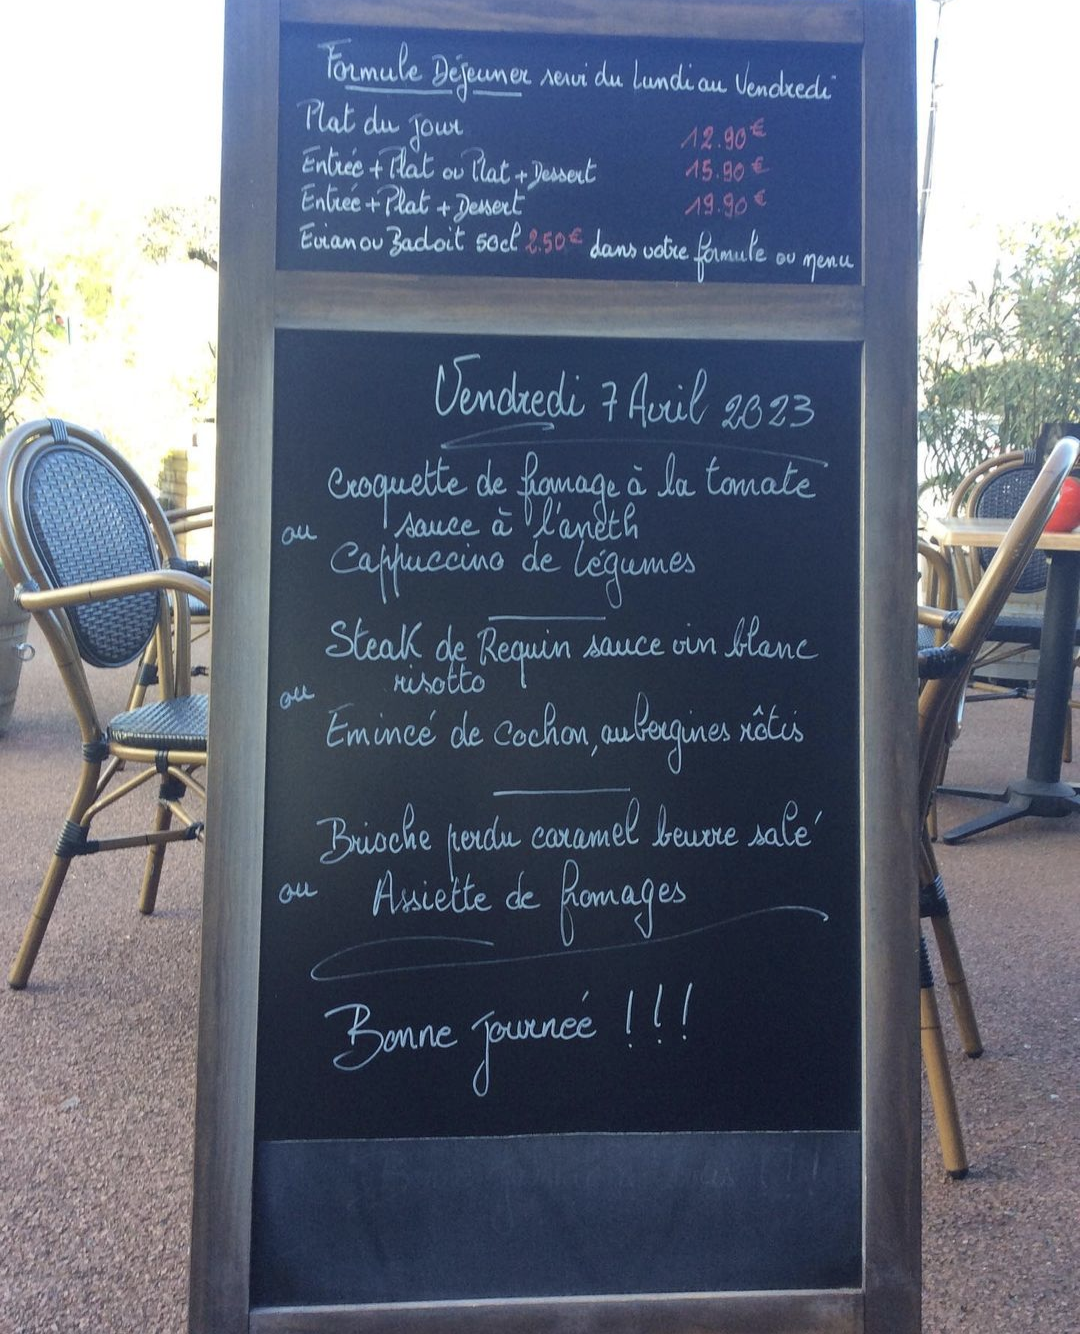 Formule Déjeuner servi du Lundi au Vendredi
Plat du jour 12.90€
Entrée + Plat ou Plat + Dessert 15.90€
Entrée + Plat + Dessert 19.90€
Evian ou Badoit 50cl 2.50€ dans votre formule ou menu
Vendredi 7 Avril 2023
Croquette de fromage à la tomate
sauce à l'aneth
ou
Cappuccino de légumes
Steak de Requin sauce vin blanc
risotto
ou
Emincé de cochon, aubergines rôtis
Brioche perdu caramel beurre salé
ou Assiette de fromages
Bonne journéé !!!